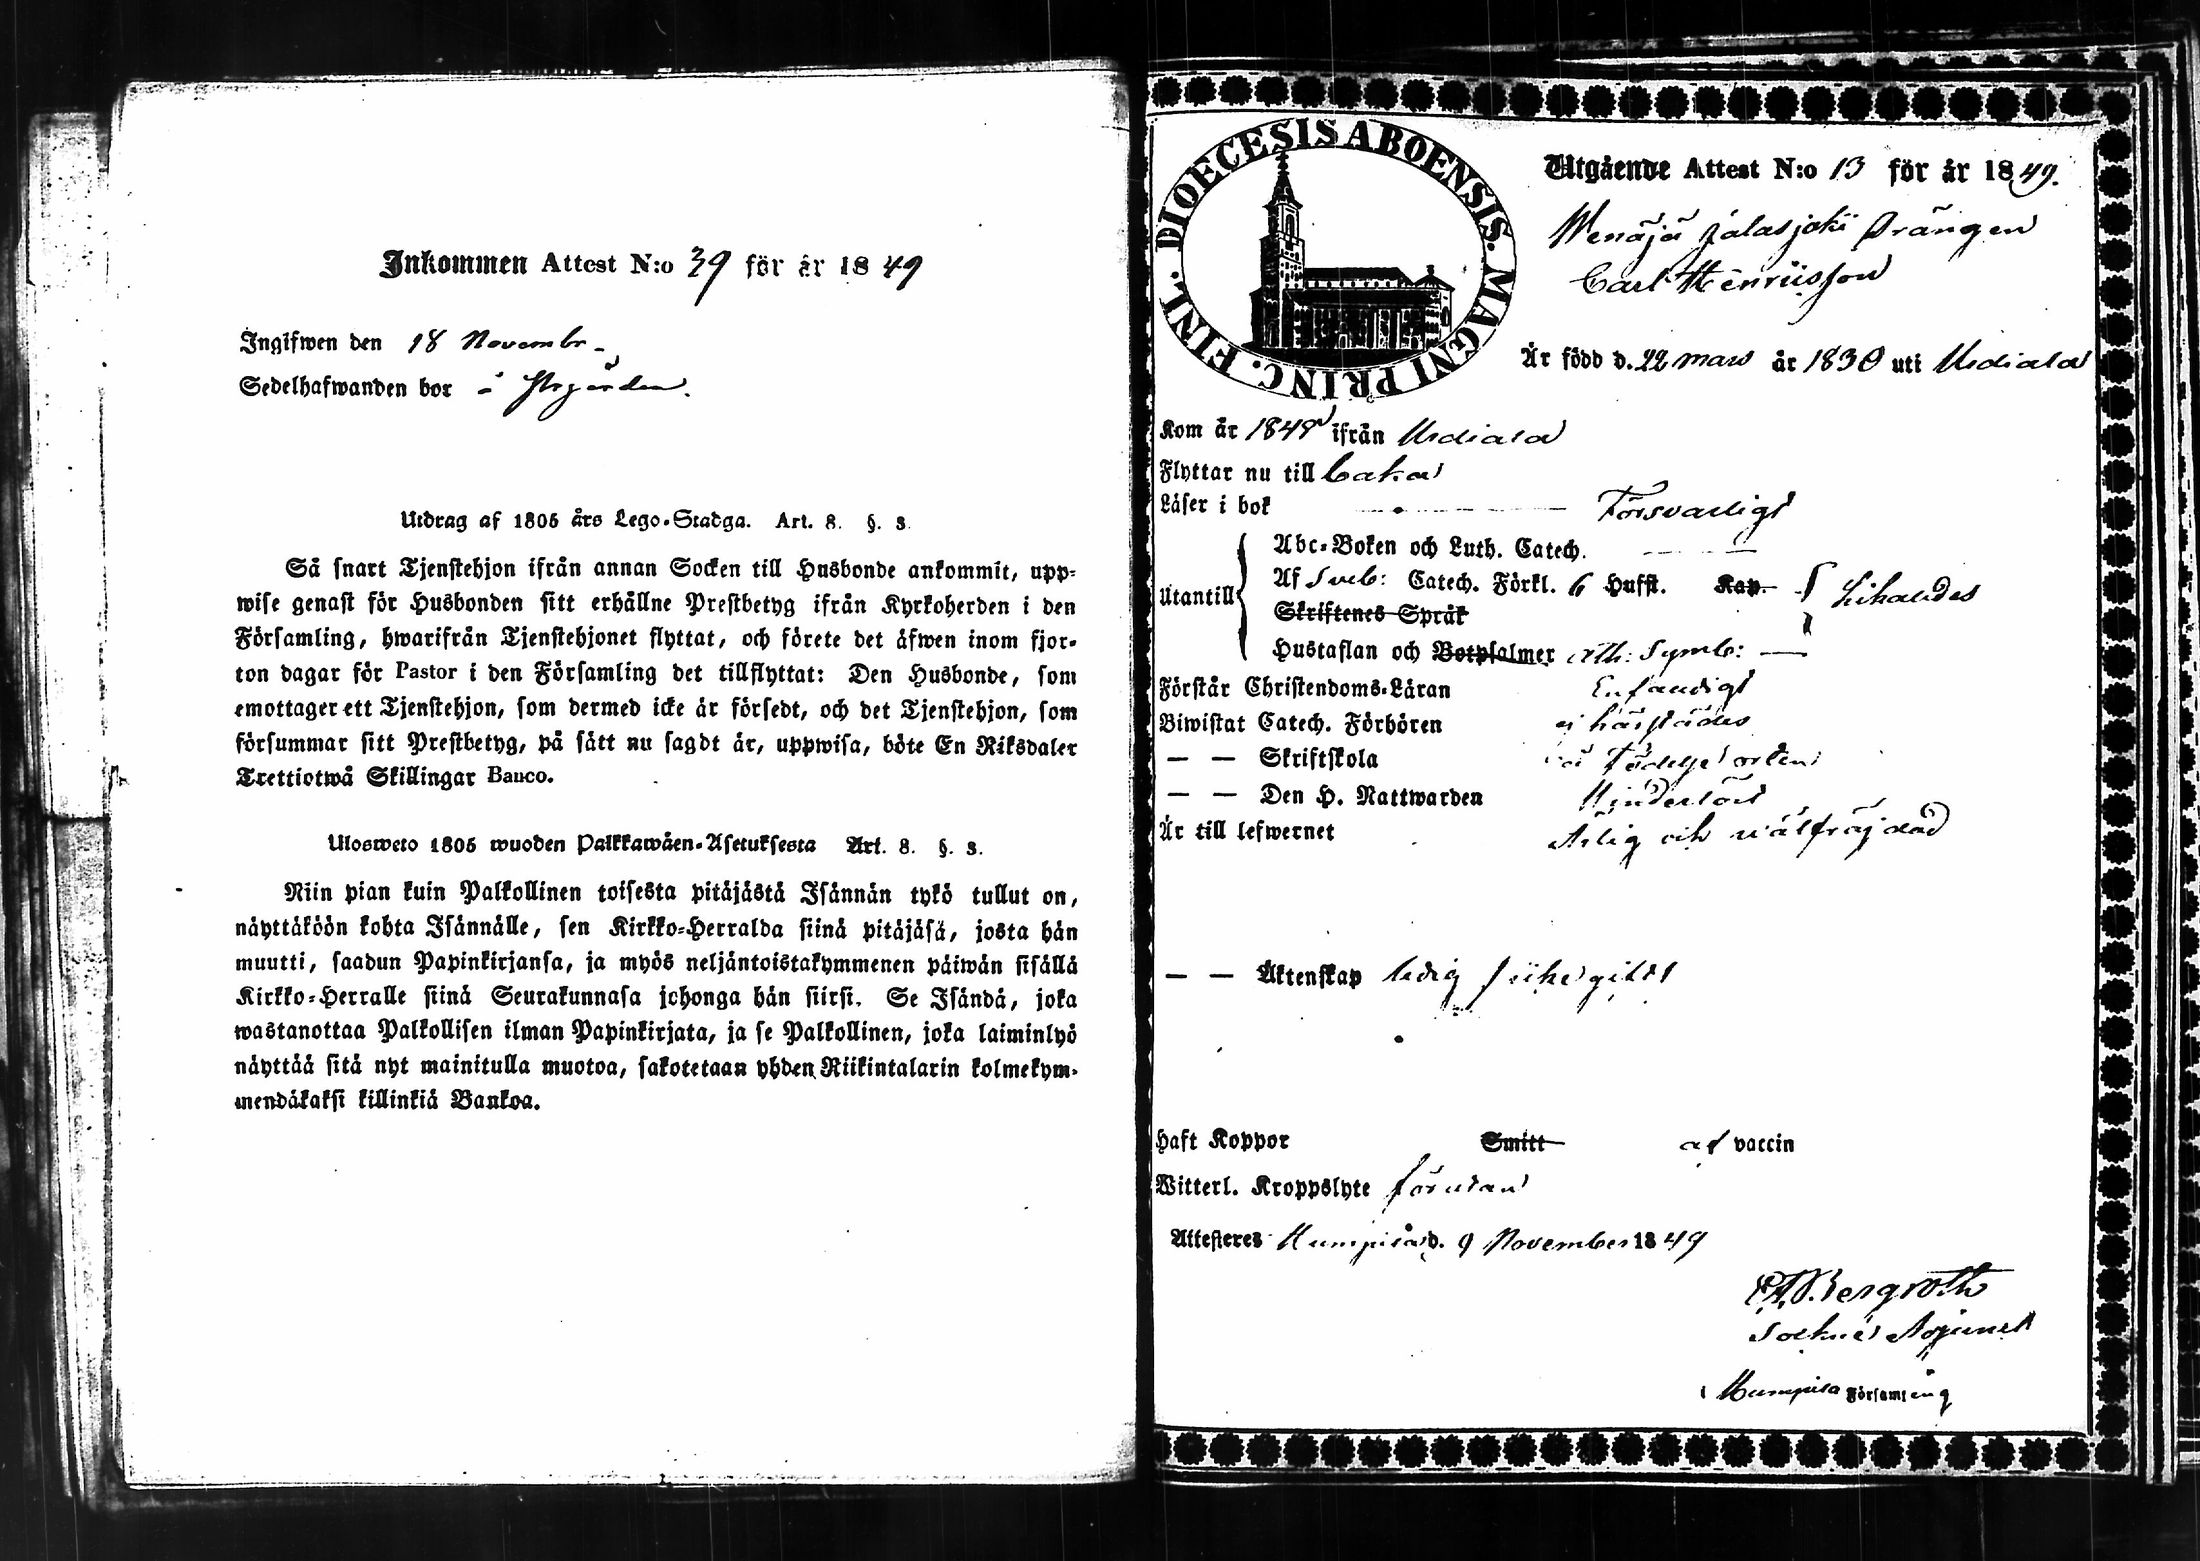 Inkommen Attest N:o 39 för år 1849
Ingifwen den 18 Novembr.
Sedelhafwanden bor å
Utdrag af 1805 års Lego-Stadga. Art. 8. §. 3.
Så snart Tjenstehjon ifrån annan Socken till Husbonde ankommit, upp-
wise genast för Husbonden sitt erhållne Prestbetyg ifrån Kyrkoherden i den
Församling, hwarifrån Tjenstehjonet flyttat, och förete det äfwen inom fjor-
ton dagar för Pastor i den Församling det tillflyttat: Den Husbonde, som
emottager ett Tjenstehjon, som dermed icke är försedt, och det Tjenstehjon, som
försummar sitt Prestbetyg, på sätt nu sagdt är, uppwisa, böte En Riksdaler
Trettiotwå Skillingar Banco.
Ulosweto 1805 wuoden Palkkawäen-Asetuksesta Art. 8. §. 3.
Niin pian kuin Palkollinen toisesta pitäjästä Isännän tykö tullut on,
näyttäköön kohta Isännälle, sen Kirkko-Herralda siinä pitäjäsä, josta hän
muutti, saadun Papinkirjansa, ja myös neljäntoistakymmenen päiwän sisällä
Kirkko-Herralle siinä Seurakunnasa johonga hän siirsi. Se Isändä, joka
wastanottaa Palkollisen ilman Papinkirjata, ja se Palkollinen, joka laiminlyö
näyttää sitä nyt mainitulla muotoa, sakotetaan yhden Riikintalarin kolmekym-
mendäkaksi killinkiä Bankoa.
DIOECESIS ABOENSIS. MAGNI PRINC. FINL.
Utgående Attest N:o 13 för år 1849.
Wenäjä Jalasjoki Drängen
Carl Henriksson
Är född d. 22 mars år 1830 uti Urdiala
Kom år 1848 ifrån Urdiala
Flyttar nu till
Läser i bok Försvarligt
Utantill
Abc-Boken och Luth. Catech.
Af Sveb: Catech. Förkl. 6 Hufst. Kap. Likaledes
Skriftenes Språk
Hustaflan och Botpsalmer Ath: Symb:
Förstår Christendoms-Läran Enfaldigt
Biwistat Catech. Förhören ej härstädes
— — Skriftskola å födelse orten
— — Den H. Nattwarden
Är till lefwernet Ärlig och wälfräjdad
— — Äktenskap ledig
Haft Koppor Smitt af vaccin
Witterl. Kroppslyte förutan
Attesteres Humpila d. 9 November 1849
Bergroth
Sockne Adjunct
i Humpila Församling